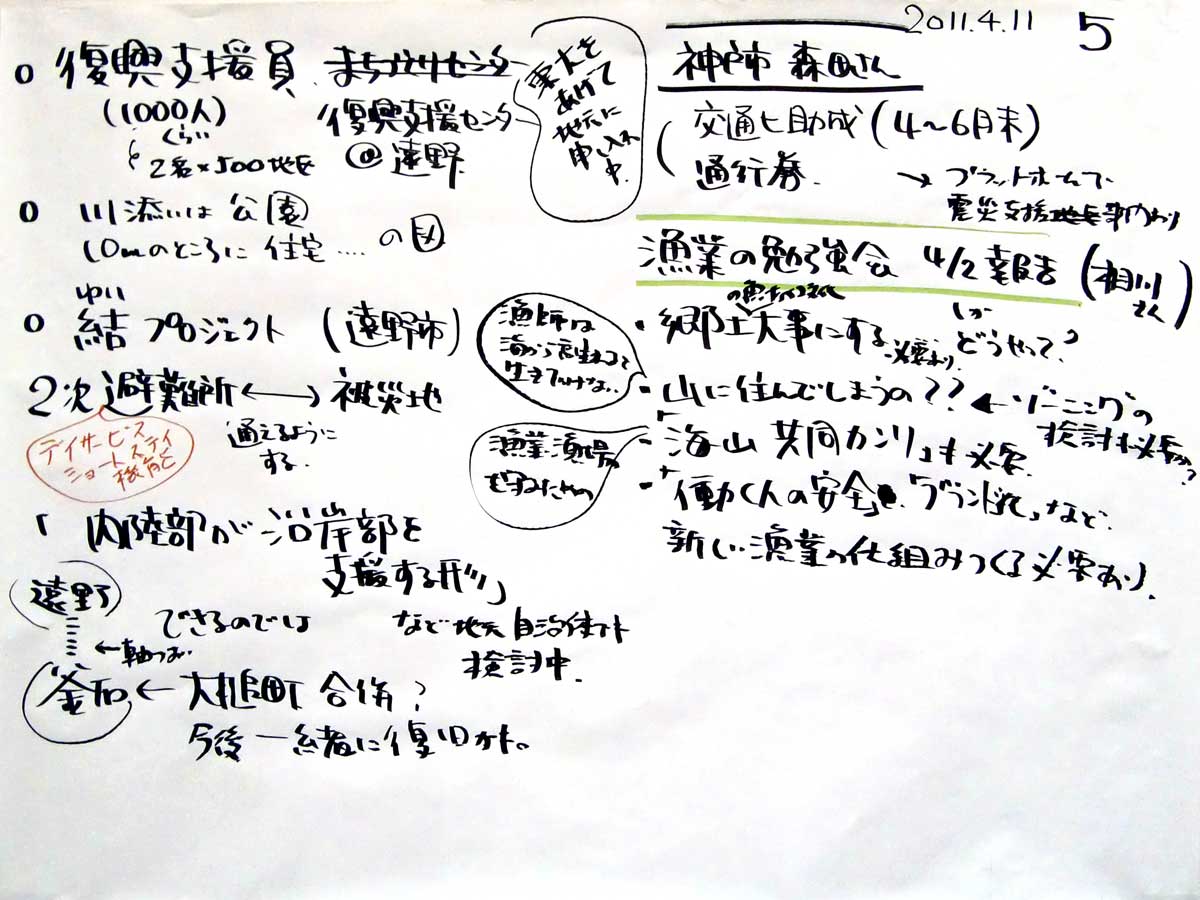 2011.4.11 5
○ 復興支援員 まちづくりセンター
(1000人) 復興支援センター
くらい @遠野
2名×500地区
東大を
あげて
地元に
申し入れ
中.
○ 川添いは 公園
10mのところに 住宅‥‥ の図
ゆい
○ 結 プロジェクト (遠野市)
2次 避難所 ←→ 被災地
デイサービス
ショートステイ
機能
通えるように
する.
「内陸部が 沿岸部を
支援する形」
遠野
できるのでは
など 地元 自治体で
検討中.
釜石 ← 大槌町 合併?
今後 一緒に復旧か.
神戸市 森田さん
交通ヒ助成 (4~6月末)
通行券.
→ プラットホームで
震災支援
漁業の勉強会 4/2 報告 (相川さん)
・郷土大事にする どうやって?
必要あり
漁師は
海から
・山に住んでしまうの?? ← ゾーニングの
検討も必要か?
・「海山 共同カンリ」も 必要.
漁業漁場
・「働く人の安全」と、「ブランド化」など、
新しい漁業の仕組みつくる必要あり.